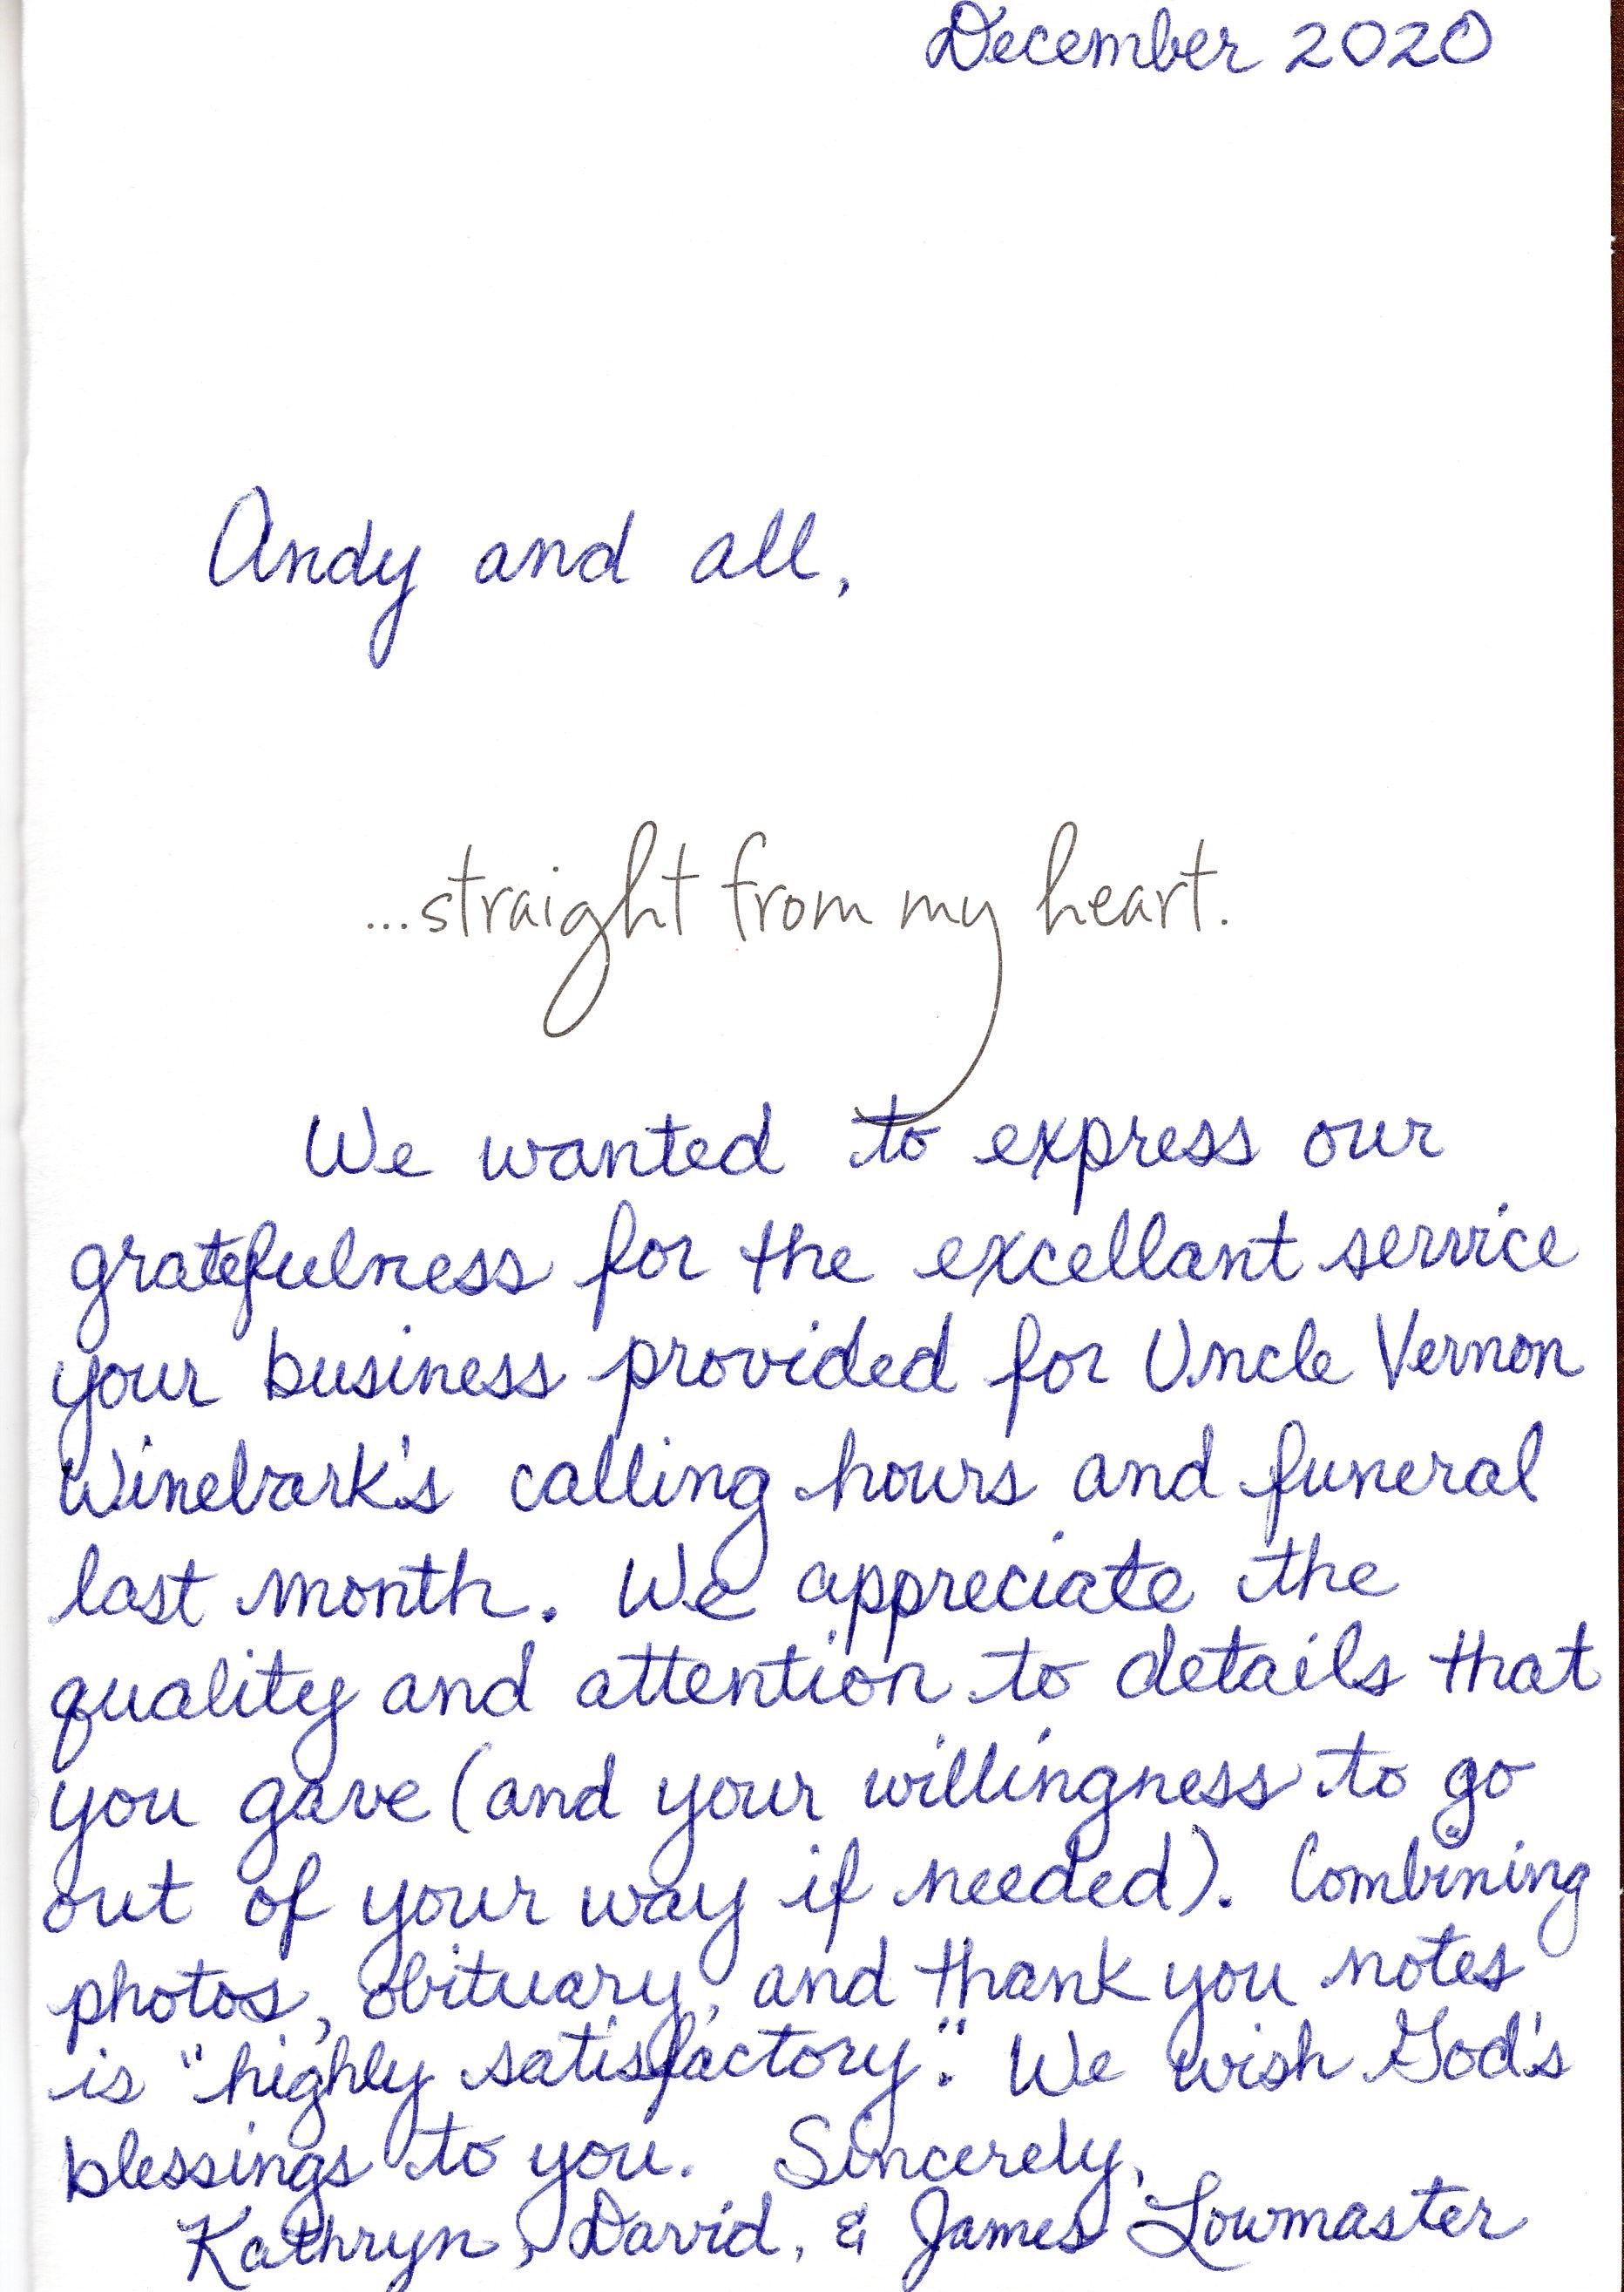 December 2020
Andy and all,
...straight from my heart.
We wanted to express our
gratefulness for the excellant service
your business provided for Uncle Vernon
Winebrark's calling hours and funeral
last month. We appreciate the
quality and attention to details that
you gave (and your willingness to go
out of your way if needed). Combining
photos, obituary, and thank you notes
is "highly satisfactory." We wish God's
blessings to you. Sincerely,
Kathryn, David, & James Lowmaster